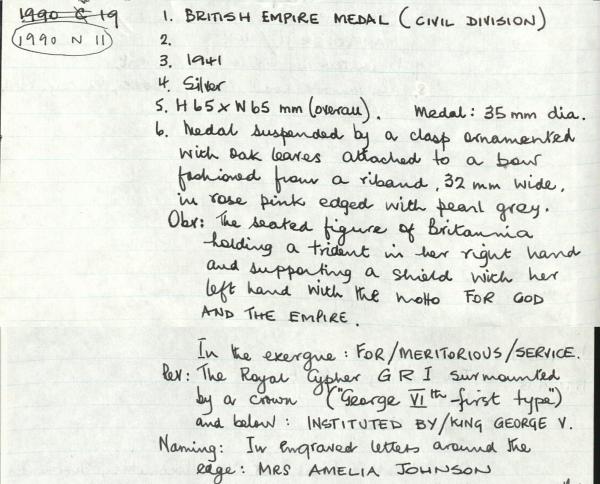 1990 C 19
1990 N 11
1. BRITISH EMPIRE MEDAL (CIVIL DIVISION)
2.
3. 1941
4. Silver
5. H 65 x W 65 mm (overall). Medal: 35 mm dia.
6. Medal suspended by a clasp ornamented
with oak leaves attached to a bow
fashioned from a riband, 32 mm wide,
in rose pink edged with pearl grey.
Obv: The seated figure of Britannia
holding a trident in her right hand
and supporting a shield with her
left hand with the motto FOR GOD
AND THE EMPIRE.
In the exergue: FOR/MERITORIOUS/SERVICE.
Rev: The Royal Cypher G R I surmounted
by a crown ("George VIth-first type")
and below: INSTITUTED BY/KING GEORGE V.
Naming: In engraved letters around the
edge: MRS AMELIA JOHNSON